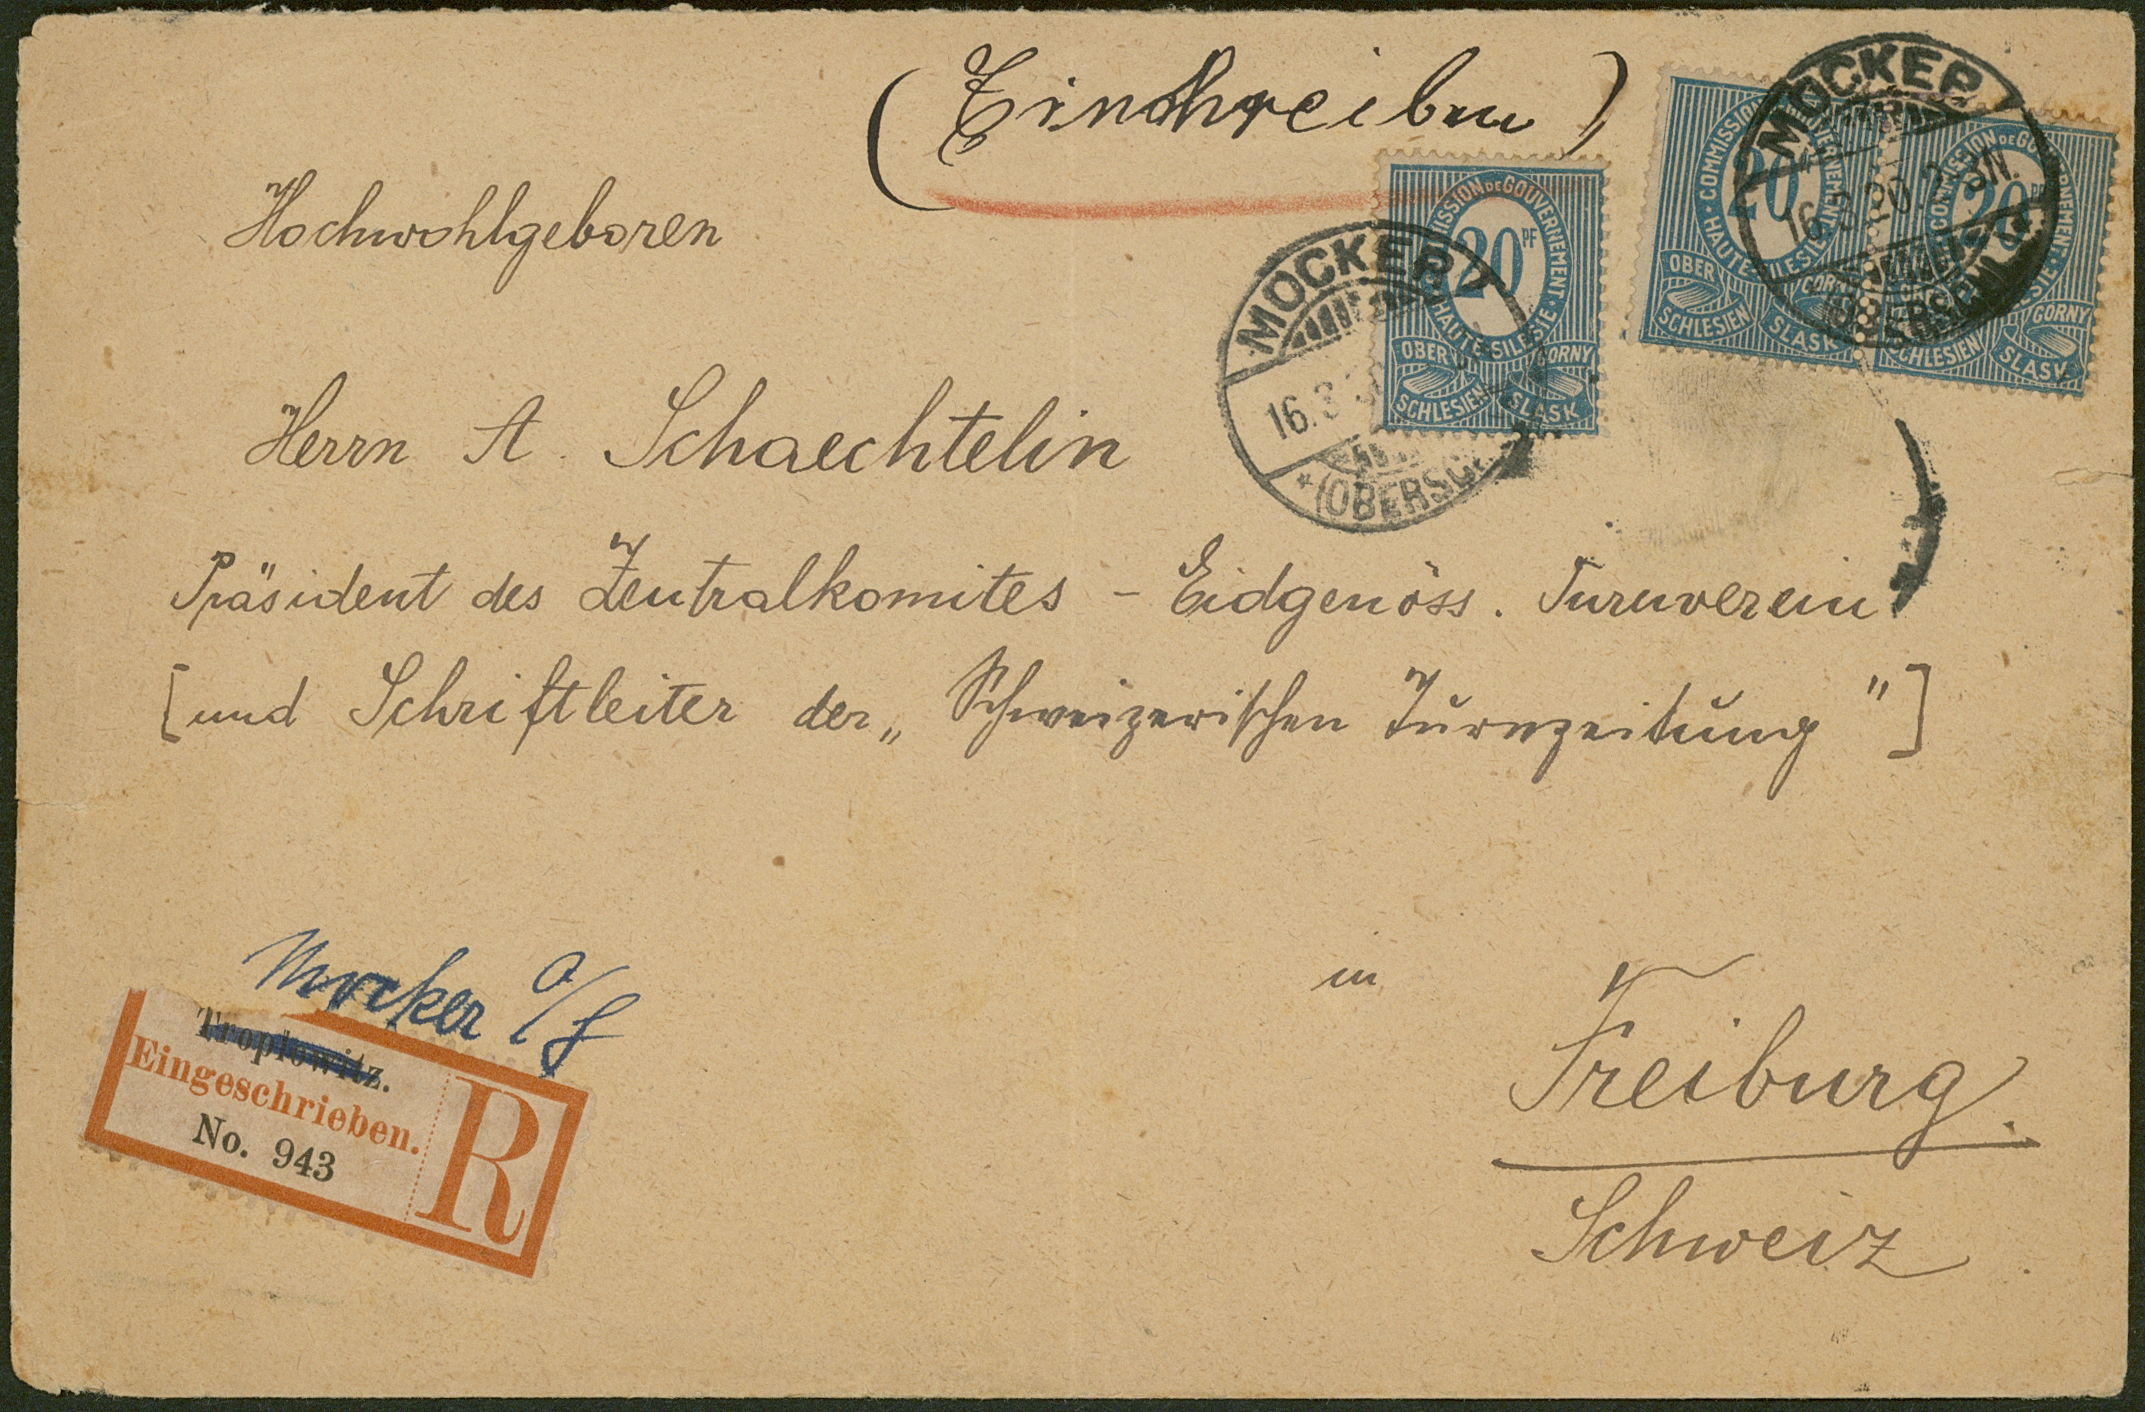 (Einschreiben)
Hochwohlgeboren
Herrn A. Schaechtelin
Präsident des Zentralkomites - Eidgenöss. Turnverein
[und Schriftleiter der „Schweizerischen Turnzeitung"]
in
Freiburg.
Schweiz
Mocker O/S
Troplowitz.
Eingeschrieben.
No. 943
R
MOCKER
16.3.
*(OBERSCH
COMMISSION DE GOUVERNEMENT · HAUTE-SILESIE
20 PF
OBER SCHLESIEN
GORNY SLASK
MOCKER
16.3.20.2-3N.
(OBERSCHL.)
COMMISSION DE GOUVERNEMENT · HAUTE-SILESIE
20
OBER SCHLESIEN
GORNY SLASK
COMMISSION DE GOUVERNEMENT · HAUTE-SILESIE
20 PF
SCHLESIEN
GORNY SLASK